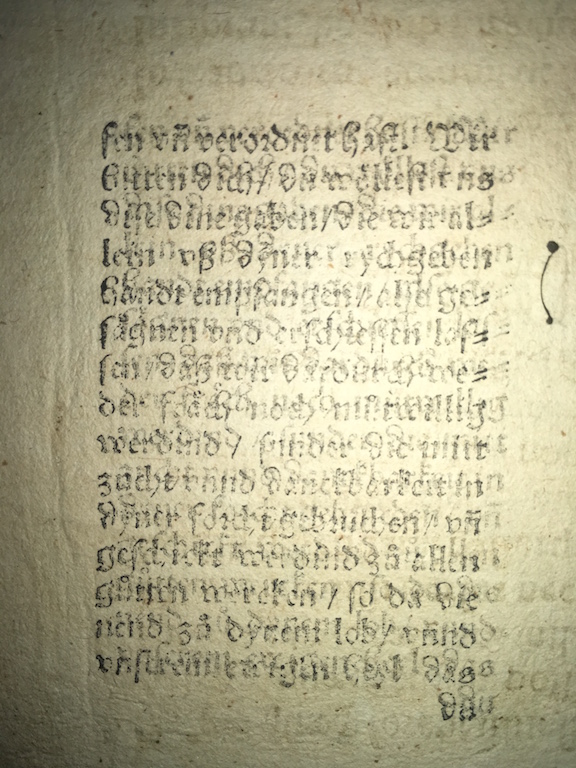 sen vñ verordnet hast. Wir
bitten dich / du wöllest vns
dise dine gaben / die wir al⸗
lein vß dyner rychgeben
handt empfangen / also ge⸗
sägnen vnd erschiessen las⸗
sen / daß wir dardurch we⸗
der noch můtwillig
werdind / sunder die mitt
zucht vnnd danckbarkeit in
dyner forcht gebruchen / vñ
geschickt werdind zů allen
gůten wercken / so da die
nend zů dynem lob / vnnd
vnserem das
du